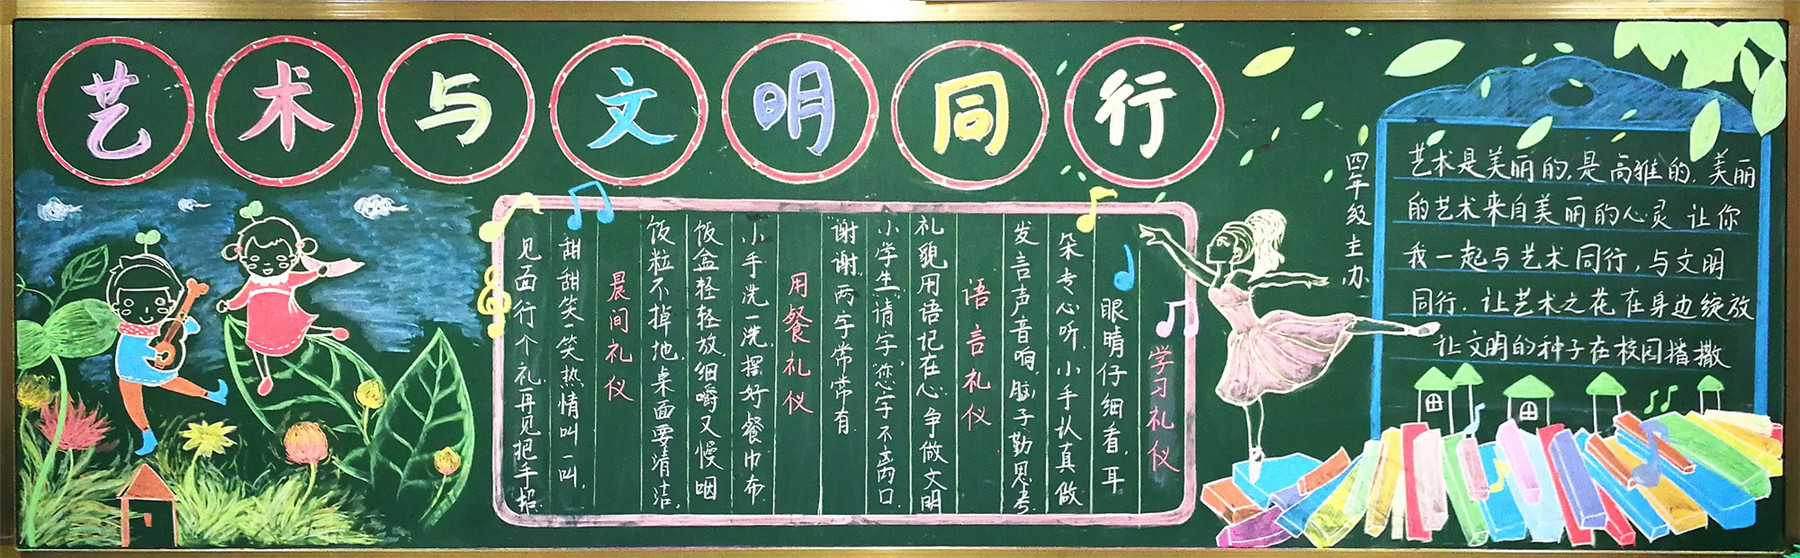 艺术与文明同行
学习礼仪
眼睛仔细看,耳
朵专心听,小手认真做
发言声音响,脑子勤思考
语言礼仪
礼貌用语记在心,争做文明
小学生"请"字"您"字不离口,
"谢谢"两字常常有
用餐礼仪
小手洗一洗,摆好餐巾布
饭盒轻轻放,细嚼又慢咽
饭粒不掉地,桌面要清洁。
晨间礼仪
甜甜笑一笑,热情叫一叫,
见面行个礼,再见把手招.
四年级主办
艺术是美丽的,是高雅的.美丽
的艺术来自美丽的心灵 让你
我一起与艺术同行,与文明
同行.让艺术之花在身边绽放
让文明的种子在校园播撒